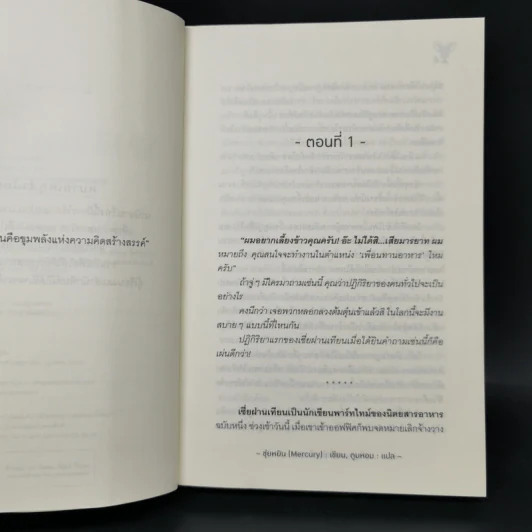 นคือขุมพลังแห่งความคิดสร้างสรรค์"
- ตอนที่ 1 -
"ผมอยากเลี้ยงข้าวคุณครับ! อ๊ะ ไม่ได้สิ...เสียมารยาท ผม
หมายถึง คุณสนใจจะทำงานในตำแหน่ง 'เพื่อนทานอาหาร' ไหม
ครับ"
ถ้าจู่ๆ มีใครมาถามเช่นนี้ คุณว่าปฏิกิริยาของคนทั่วไปจะเป็น
อย่างไร
คงนึกว่า เจอพวกหลอกลวงต้มตุ๋นเข้าแล้วสิ ในโลกนี้จะมีงาน
สบายๆ แบบนี้ที่ไหนกัน
ปฏิกิริยาแรกของเซี่ยผ่านเทียนเมื่อได้ยินคำถามเช่นนี้ก็คือ
เผ่นดีกว่า!
• • • • •
เซี่ยผ่านเทียนเป็นนักเขียนพาร์ทไทม์ของนิตยสารอาหาร
ฉบับหนึ่ง ช่วงเช้าวันนี้ เมื่อเขาเข้าออฟฟิศก็พบจดหมายเลิกจ้างวาง
~ สุ่ยหยิน (Mercury) : เขียน, ถูมหอม : แปล ~